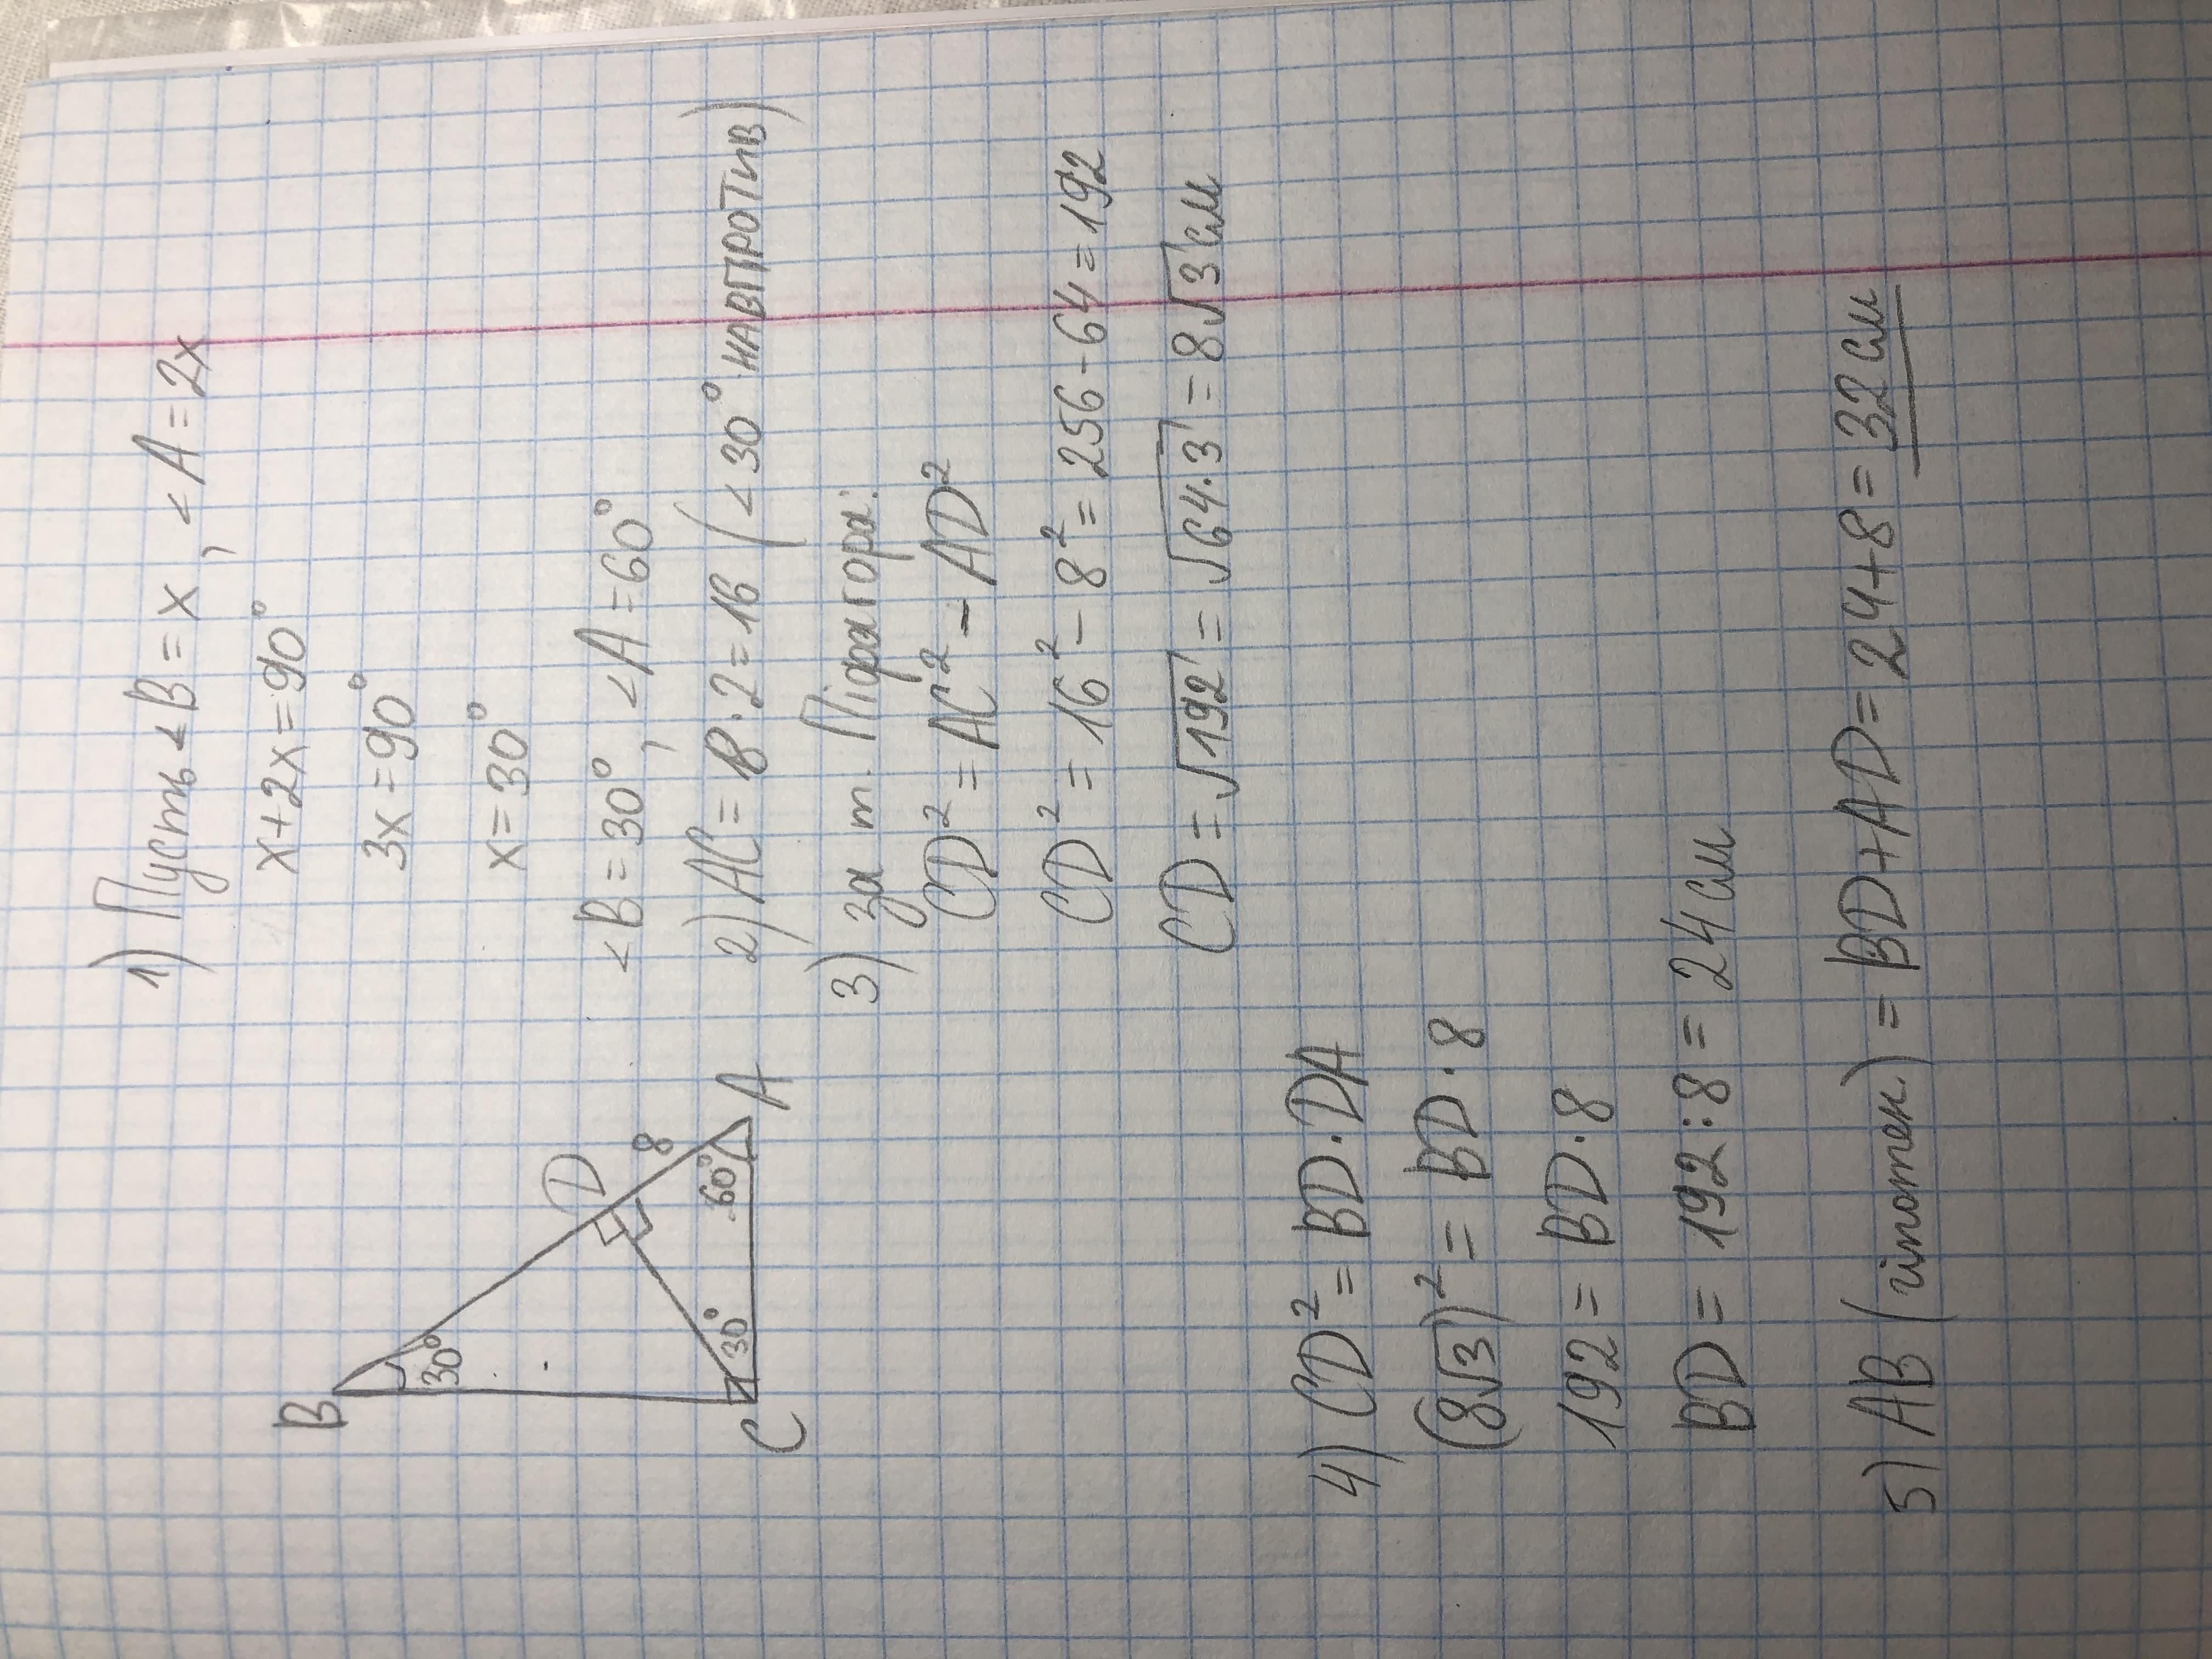 1) Пусть <B = x, <A = 2x
x+2x=90°
3x=90°
x=30°
<B=30°, <A=60°
2) AC=8·2=16 (<30° НАВПРОТИВ)
3) за т. Піфагора:
CD²=AC²-AD²
CD²=16²-8²=256-64=192
CD=√192=√64·3=8√3 см
B
30°
D
8
C
30°
60°
A
4) CD²=BD·DA
(8√3)²=BD·8
192=BD·8
BD=192:8=24 см
5) AB (іпотен)=BD+AD=24+8=32 см